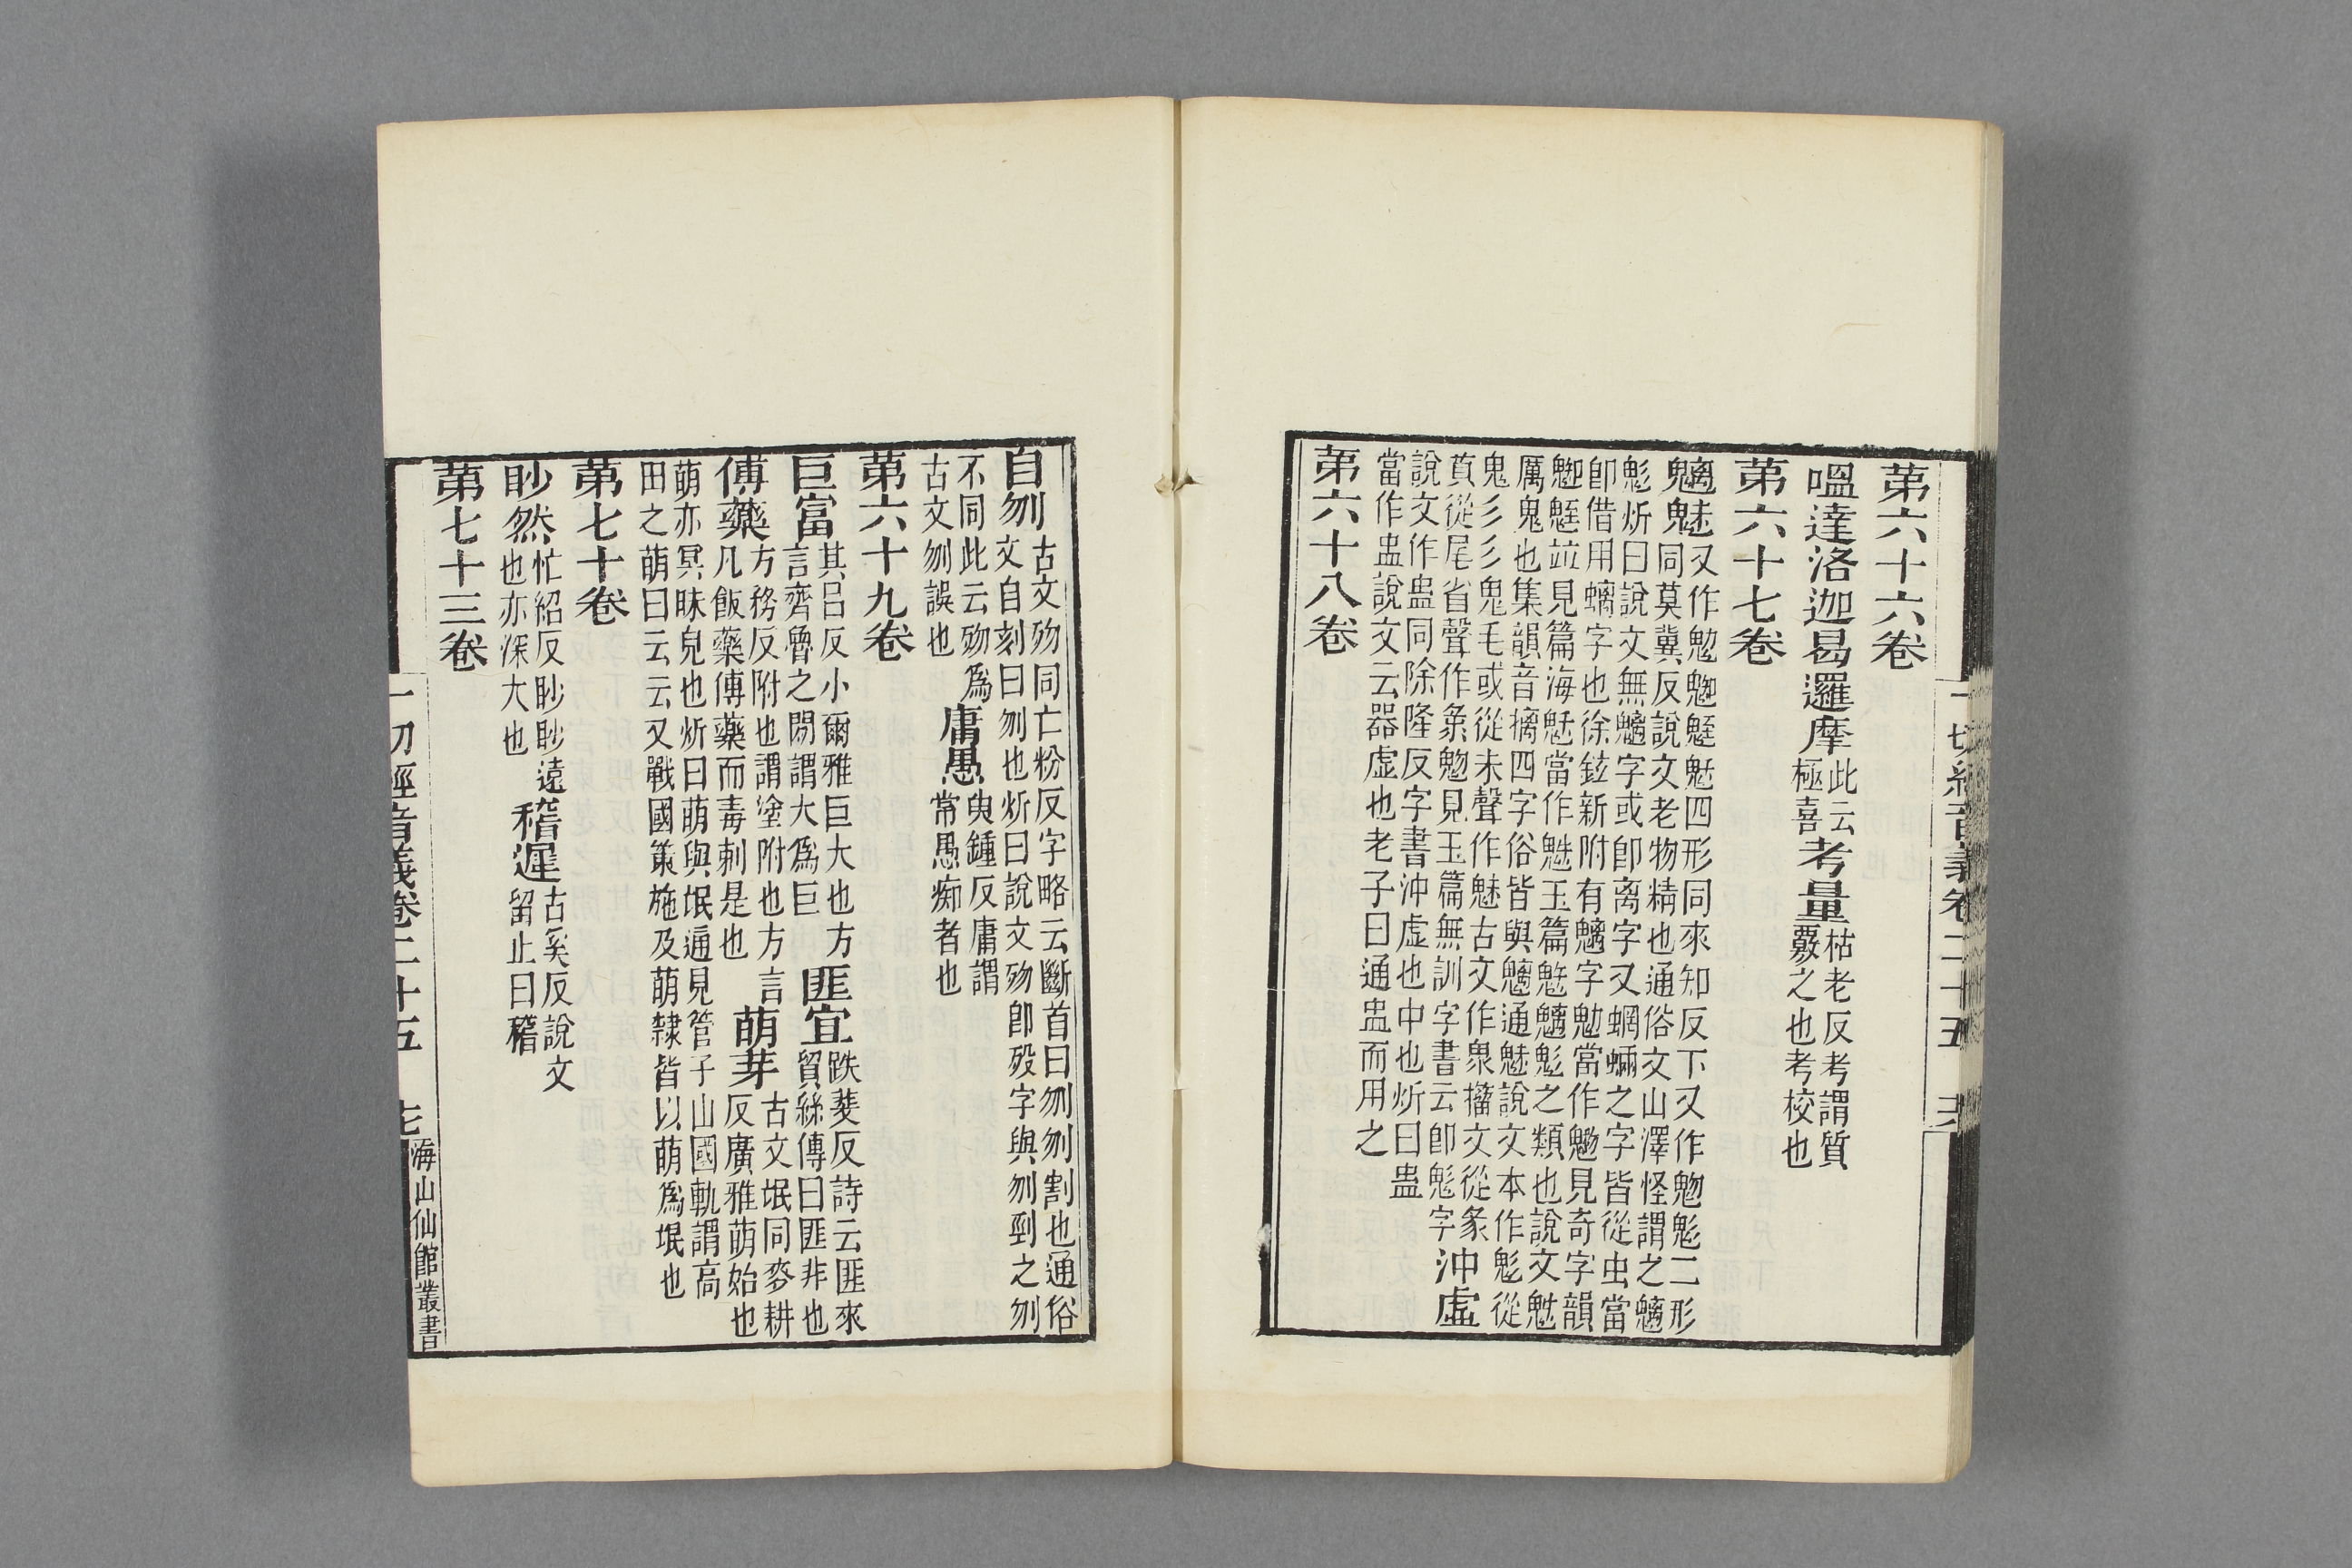 第六十六卷
嗢達洛迦曷邏摩此云極喜考量枯老反考謂質覈之也考校也
第六十七卷
魑魅又作魑四形同來知反下又作二形
同莫冀反說文老物精也通俗文山澤怪謂之魑
炘曰說文無魑字或卽离字又蝄蜽之字皆從虫當
卽借用螭字也徐鉉新附有魑字當作見奇字韻
竝見篇海當作玉篇魑之類也說文
厲鬼也集韻音摛四字俗皆與魑通魅說文本作從
鬼彡彡鬼毛或從未聲作魅古文作籀文從彖
從尾省聲作見玉篇無訓字書云卽字沖虛
說文作盅同除隆反字書沖虛也中也炘曰盅
當作盅說文云器虛也老子曰通盅而用之
第六十八卷
一切經音義卷二十五
自刎古文歾同亡粉反字略云斷首曰刎刎割也通俗
文自刻曰刎也炘曰說文歾卽歿字與刎剄之刎
不同此云歾爲古文刎誤也庸愚臾鍾反庸謂常愚痴者也
第六十九卷
巨富其呂反小爾雅巨大也方言齊魯之閒謂大爲巨匪宜跌婓反詩云匪來貿絲傳曰匪非也
傅藥方務反附也謂塗附也方言凡飯藥傅藥而毒刺是也萌芽古文氓同麥耕反廣雅萌始也
萌亦冥昧皃也炘曰萌與氓通見管子山國軌謂高
田之萌曰云云又戰國策施及萌隸皆以萌爲氓也
第七十卷
眇然忙紹反眇眇遠也亦深大也稽遲古奚反說文留止曰稽
第七十三卷
一切經音義卷二十五
海山仙館叢書